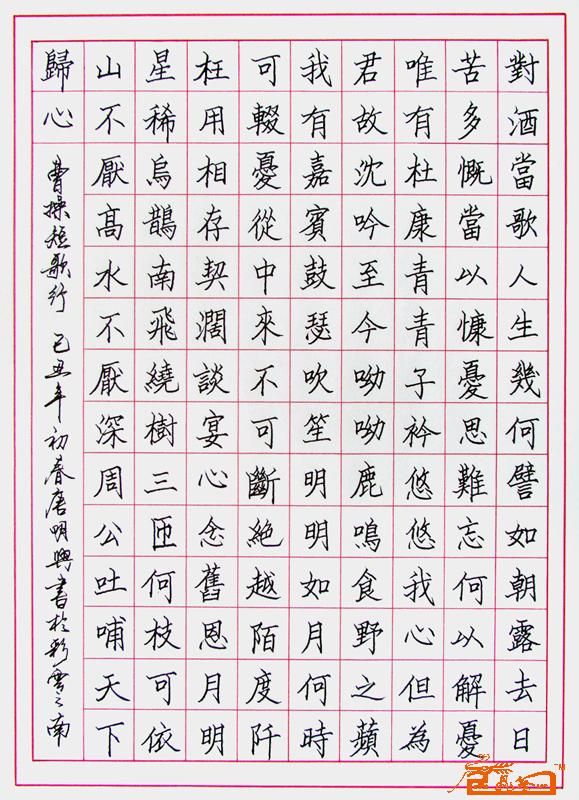 對酒當歌人生幾何譬如朝露去日
苦多慨當以慷憂思難忘何以解憂
唯有杜康青青子衿悠悠我心但為
君故沈吟至今呦呦鹿鳴食野之蘋
我有嘉賓鼓瑟吹笙明明如月何時
可輟憂從中來不可斷絕越陌度阡
枉用相存契濶談宴心念舊恩月明
星稀烏鵲南飛繞樹三匝何枝可依
山不厭高水不厭深周公吐哺天下
歸心
曹操短歌行 己丑年初春唐明興書於彩雲之南